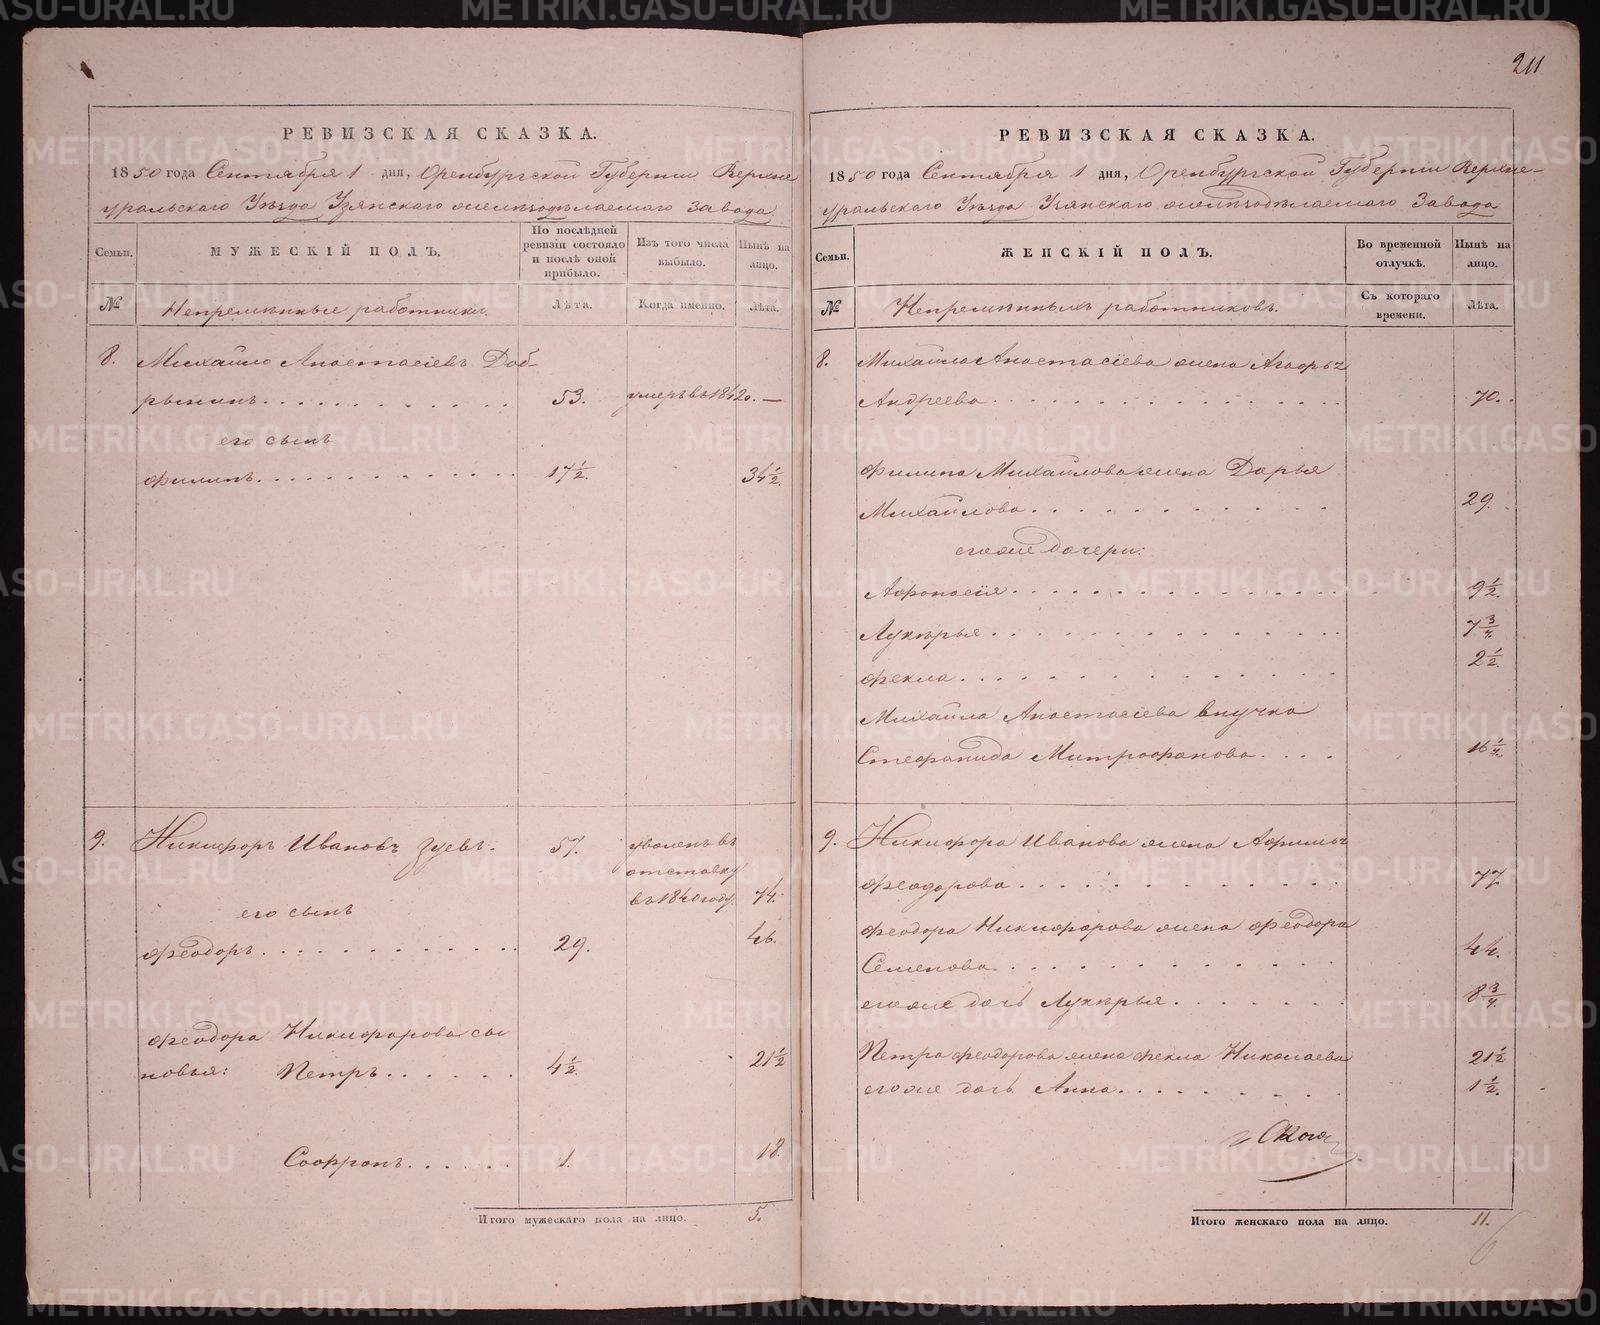 211
РЕВИЗСКАЯ СКАЗКА.
1850 года Сентября 1 дня, Оренбургской Губерніи Верхне
уральскаго Уѣзда Узянскаго желѣзодѣлаемаго Завода.
Семьи.
МУЖЕСКІЙ ПОЛЪ.
По послѣдней ревизіи состояло и послѣ оной прибыло.
Изъ того числа выбыло.
Нынѣ на лицо.
№
Непремѣнные работники.
Лѣта.
Когда именно.
Лѣта.
8. Михайло Анастасіевъ Доб-
рынинъ. 53. умеръ въ 1842о. —
его сынъ
Филипъ. 17 1/2. 34 1/2.
9. Никифоръ Ивановъ Зуевъ. 57. уволенъ въ
отставку
въ 1840 году. 74.
его сынъ
Феодоръ. 29. 46.
Феодора Никифорова сы
новья: Петръ. 4 1/2. 21 1/2
Софронъ. 1. 18.
Итого мужескаго пола на лицо. 5.
РЕВИЗСКАЯ СКАЗКА.
1850 года Сентября 1 дня, Оренбургской Губерніи Верхне-
уральскаго Уѣзда Узянскаго желѣзодѣлаемаго Завода
Семьи.
ЖЕНСКІЙ ПОЛЪ.
Во временной отлучкѣ.
Нынѣ на лицо.
№
Непремѣнныхъ работниковъ.
Съ котораго времени.
Лѣта.
8. Михайла Анастасіева жена Агафья
Андреева. 70.
Филипа Михайлова жена Дарья
Михайлова. 29.
его же дочери:
Афонасія. 9 1/2.
Лукѣрья. 7 3/4.
Фекла. 2 1/2.
Михайла Анастасіева внучка
Стефанида Митрофанова. 16 1/4.
9. Никифора Иванова жена
Феодорова. 77
Феодора Никифорова жена Феодора
Семенова. 44.
его же дочь Лукѣрья. 8 3/4.
Петра Феодорова жена Фекла Николаева 21 1/2
его же дочь Анна. 1 1/2.
Итого женскаго пола на лицо. 11.
6
METRIKI.GASO-URAL.RU